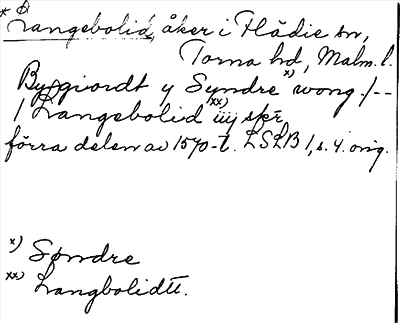 * Langebolid, åker i Flädie sn,
Torna hd, Malm. l.
Bygiordt y Syndre x) wong /--
/ Langebolid xx) iiij skr
förra delen av 1570-t. LSLB 1, s. 4. orig.
x) Søndre
xx) Langbolidtt.